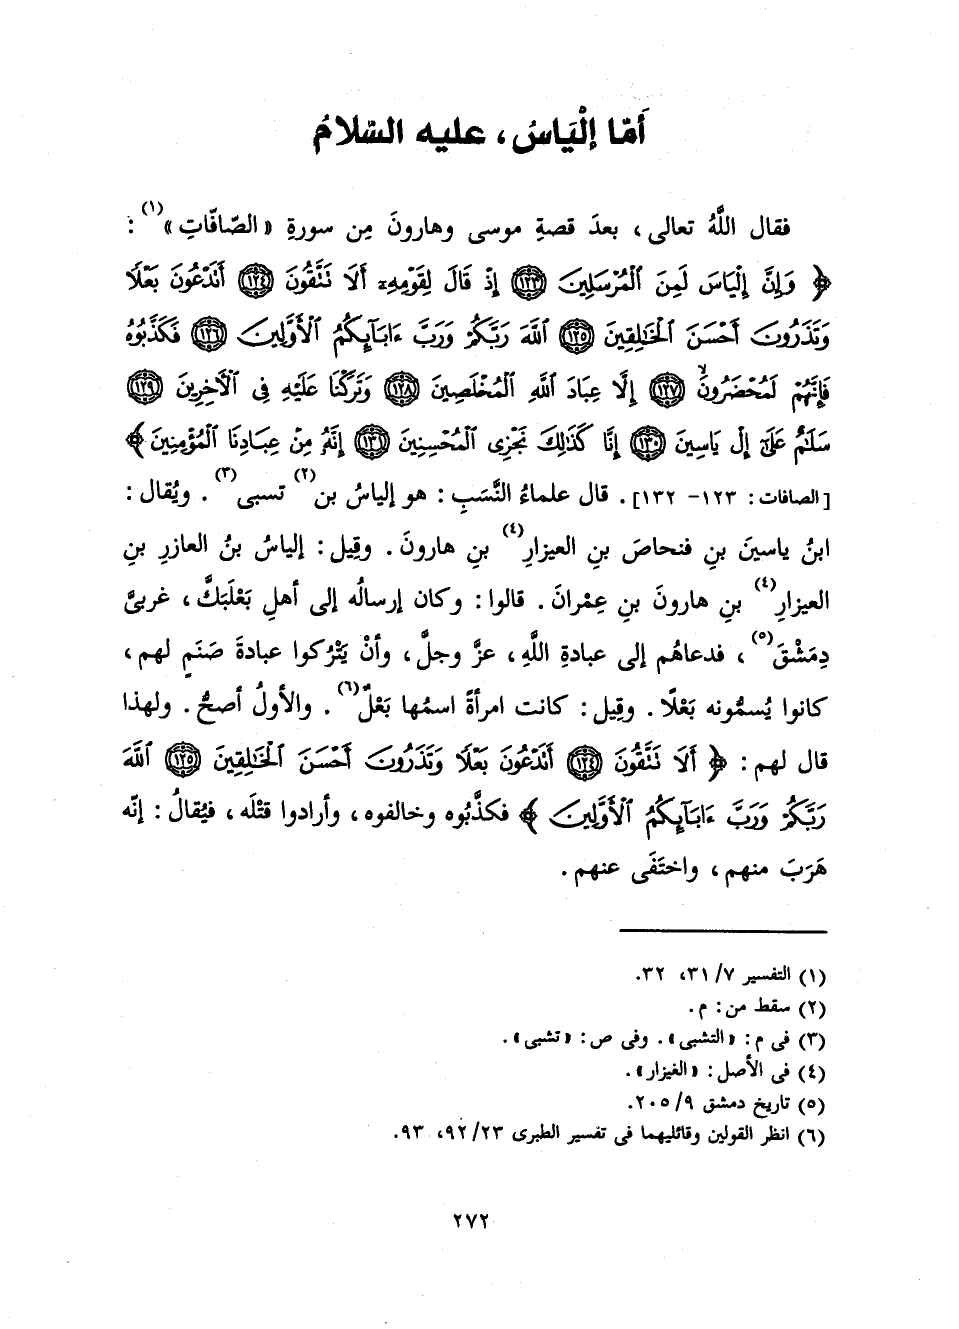 أَمّا إلْيَاسُ ، عليه السّلامُ
فقال اللَّهُ تعالى ، بعدَ قصةِ موسى وهارونَ مِن سورةِ « الصّافّاتِ »(١) :
﴿ وَإِنَّ إِلْيَاسَ لَمِنَ الْمُرْسَلِينَ ١٢٣ إِذْ قَالَ لِقَوْمِهِۦٓ أَلَا نَتَّقُونَ ١٢٤ أَتَدْعُونَ بَعْلًا
وَتَذَرُونَ أَحْسَنَ الْخَـٰلِقِينَ ١٢٥ اللَّهَ رَبَّكُمْ وَرَبَّ ءَابَآئِكُمُ الْأَوَّلِينَ ١٢٦ فَكَذَّبُوهُ
فَإِنَّهُمْ لَمُحْضَرُونَ ١٢٧ إِلَّا عِبَادَ اللَّهِ الْمُخْلَصِينَ ١٢٨ وَتَرَكْنَا عَلَيْهِ فِى الْآخِرِينَ ١٢٩
سَلَـٰمٌ عَلَىٰٓ إِلْ يَاسِينَ ١٣٠ إِنَّا كَذَٰلِكَ نَجْزِى الْمُحْسِنِينَ ١٣١ إِنَّهُ مِنْ عِبَادِنَا الْمُؤْمِنِينَ ﴾
[ الصافات : ١٢٣- ١٣٢] . قال علماءُ النَّسَبِ : هو إلياسُ بن(٢) تسبى(٣) . ويُقال :
ابنُ ياسينَ بنِ فنحاصَ بنِ العيزارِ(٤) بنِ هارونَ . وقِيل : إلياسُ بنُ العازرِ بنِ
العيزارِ(٤) بنِ هارونَ بنِ عِمْرانَ . قالوا : وكان إرسالُه إلى أهلِ بَعْلَبَكَّ ، غربىَّ
دِمَشْقَ(٥) ، فدعاهُم إلى عبادةِ اللَّهِ ، عزَّ وجلَّ ، وأنْ يَتْرُكوا عبادةَ صَنَمٍ لهم ،
كانوا يُسمُّونه بَعْلًا . وقِيل : كانت امرأةً اسمُها بَعْلٌ(٦) . والأولُ أصحُّ . ولهذا
قال لهم : ﴿ أَلَا نَتَّقُونَ ١٢٤ أَتَدْعُونَ بَعْلًا وَتَذَرُونَ أَحْسَنَ الْخَـٰلِقِينَ ١٢٥ اللَّهَ
رَبَّكُمْ وَرَبَّ ءَابَآئِكُمُ الْأَوَّلِينَ ﴾ فكذَّبُوه وخالفوه ، وأرادوا قتْلَه ، فيُقالُ : إنّه
هَرَبَ منهم ، واختَفَى عنهم .
(١) التفسير ٧/ ٣١، ٣٢.
(٢) سقط من : م .
(٣) فى م : « التشبى » . وفى ص : « تشبى » .
(٤) فى الأصل : « الغيزار » .
(٥) تاريخ دمشق ٩/ ٢٠٥.
(٦) انظر القولين وقائليهما فى تفسير الطبرى ٢٣/ ٩٢، ٩٣.
٢٧٢